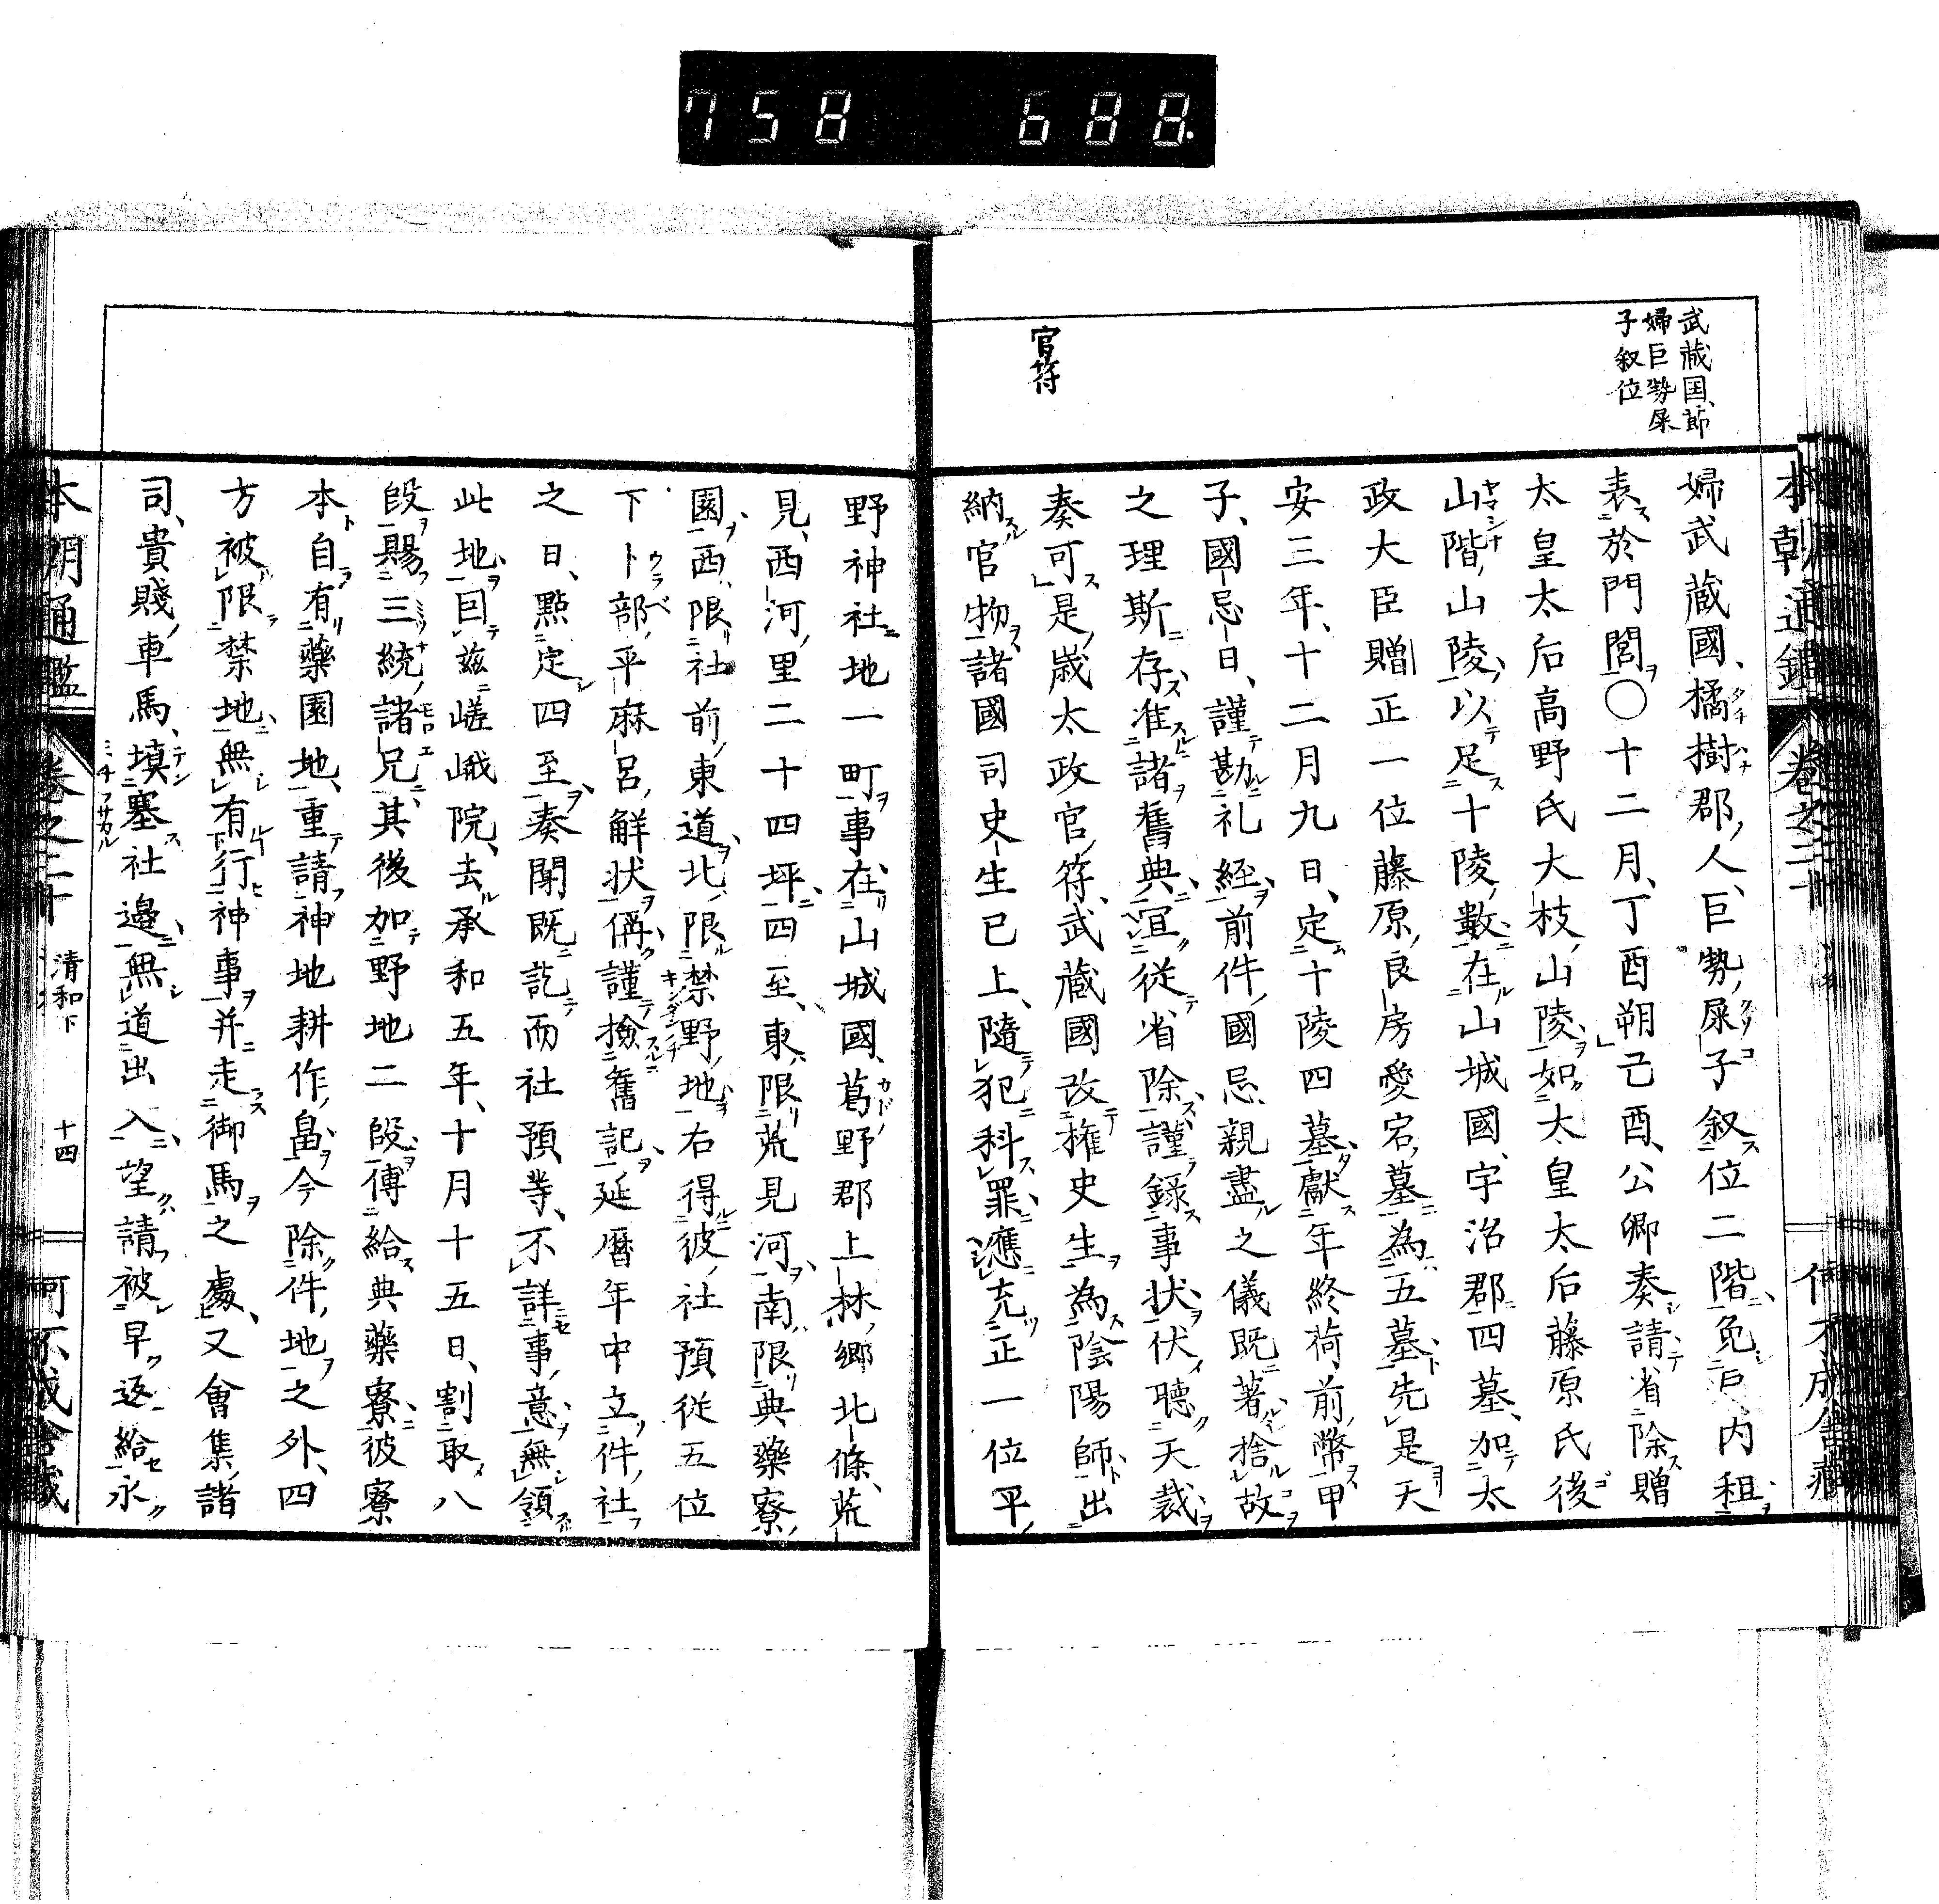 758 688.
武藏国節
婦巨勢屎
子叙位
官符
婦武藏國橘樹郡人巨勢屎子叙位二階免戸内租
表於門閭○十二月丁酉朔己酉公卿奏請省除贈
太皇太后高野氏大枝山陵如太皇太后藤原氏後
山階山陵以足十陵數在山城國宇治郡四墓加太
政大臣贈正一位藤原良房愛宕墓為五墓先是天
安三年十二月九日定十陵四墓獻年終荷前幣甲
子國忌日謹勘礼經前件國忌親盡之儀既著捨故
之理斯存准諸舊典冝從省除謹錄事状伏聴天裁
奏可是歳太政官符武蔵國改權史生為陰陽師出
納官物諸國司史生已上隨犯科罪應充正一位平
野神社地一町事在山城國葛野郡上林郷北條荒
見西河里二十四坪四至東限荒見河南限典藥寮
園西限社前東道北限禁野地右得彼社預従五位
下卜部平麻呂解状偁謹撿舊記延暦年中立件社
之日點定四至奏聞既訖而社預等不詳事意無領
此地囙茲嵯峨院去承和五年十月十五日割取八
段賜三統諸兄其後加野地二段傳給典藥寮彼寮
本自有藥園地重請神地耕作畠今除件地之外四
方被限禁地無有行神事并走御馬之處又會集諸
司貴賤車馬填塞社邉無道出入望請被早返給永
本朝通鑑 卷之二十 清和下 十四